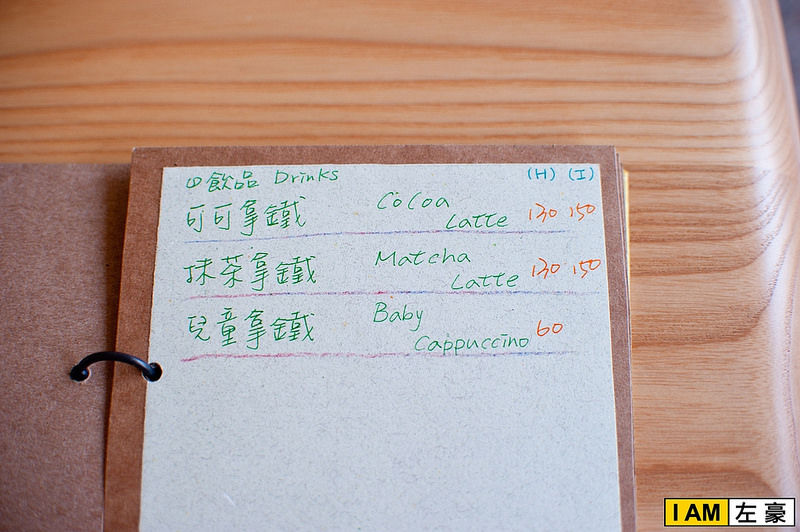 飲品 Drinks (H) (I)
可可拿鐵 Cocoa Latte 130 150
抹茶拿鐵 Matcha Latte 130 150
兒童拿鐵 Baby Cappuccino 60
I AM 左豪